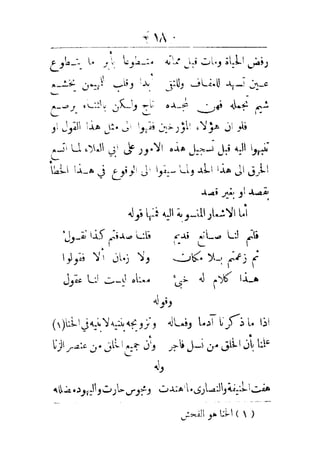 ١٨٠
رفض الحياة ومات قبل مماته متطوعا بأبر ما يتطوع
عين تسهد للعفاف وللتقى أبدا وقلب للمهيمن يخشع
شيم تجمله فهن لمجده تاج ولكن بالثناء يرصع
فلو ان هؤلاء المؤرخين فقهوا الى مثل هذا القول او
تنبهوا اليه قبل تسجيل هذه الامور على ابي العلاء لما اتسع
الخرق الى هذا الحد ولما سيقوا الى الوقوع في هذا الخطأ
بقصد او بغير قصد
أما الاشعار المنسوبة اليه فمنها قوله
قلتم لنا صانع قديم قلنا صدقتم كذا نقول
ثم زعمتم بلا مكان ولا زمان ألا فقولوا
هذا كلام له خبئ معناه ليست لنا عقول
وقوله
اذا ما ذكرنا آدما وفعاله وتزويجه بنتيه لابنيه في الخنا (١)
علمنا بأن الخلق من نسل فاجر وأن جميع الخلق من عنصر الزنا
وله
هفت الحنيفة والنصارى ما اهتدت ومجوس حارت واليهود مضلله
(١) الخنا هو الفحش